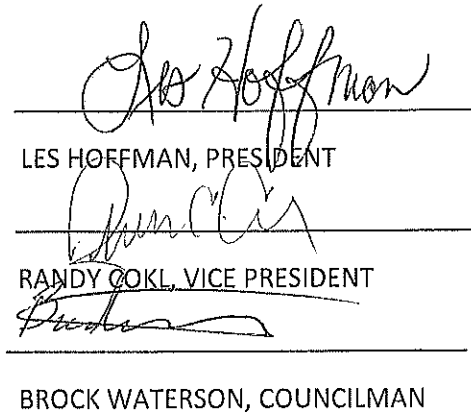 Les Hoffman
LES HOFFMAN, PRESIDENT
RANDY COKL, VICE PRESIDENT
BROCK WATERSON, COUNCILMAN